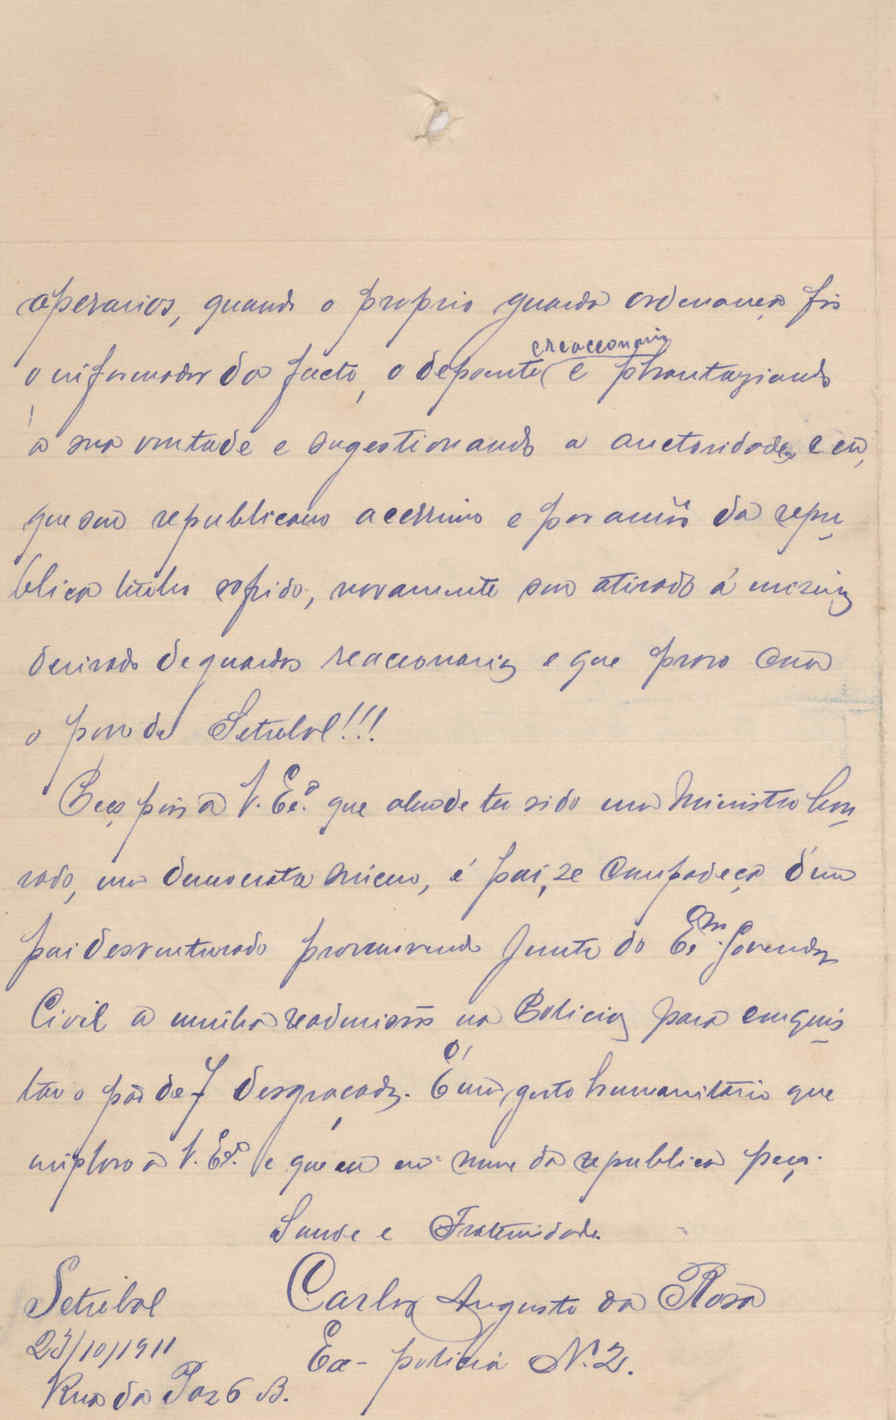 operarios, quando o proprio guarda ordenança foi
o informador do facto, o depoente (e reaccionario) é phantaziando
a sua vontade e sugestionando a auctoridade, e eu,
que sou republicano acerrimo e por amôr da repu
blica tenho sofrido, novamente sou atirado á mizeria
derivado de guardas reaccionarios e que provo com
o povo de Setubal!!!
Peço pois a V. Ex.ª que alem de ter sido um Ministro hon
rado, um democrata sincero, é pai, se compadeça d'um
pai desventurado promovendo junto do Ex.m Governador
Civil a minha readmissão na Policia para conquis
tar o pão de 7 desgraçados. É um gesto humanitario que
imploro a V. Ex.ª e que eu em nome da republica peço.
Saude e Fraternidade.
Setubal
Carlos Augusto da Rosa
23/10/1911
Ex-policia N.2.
Rua da Paz 6 B.